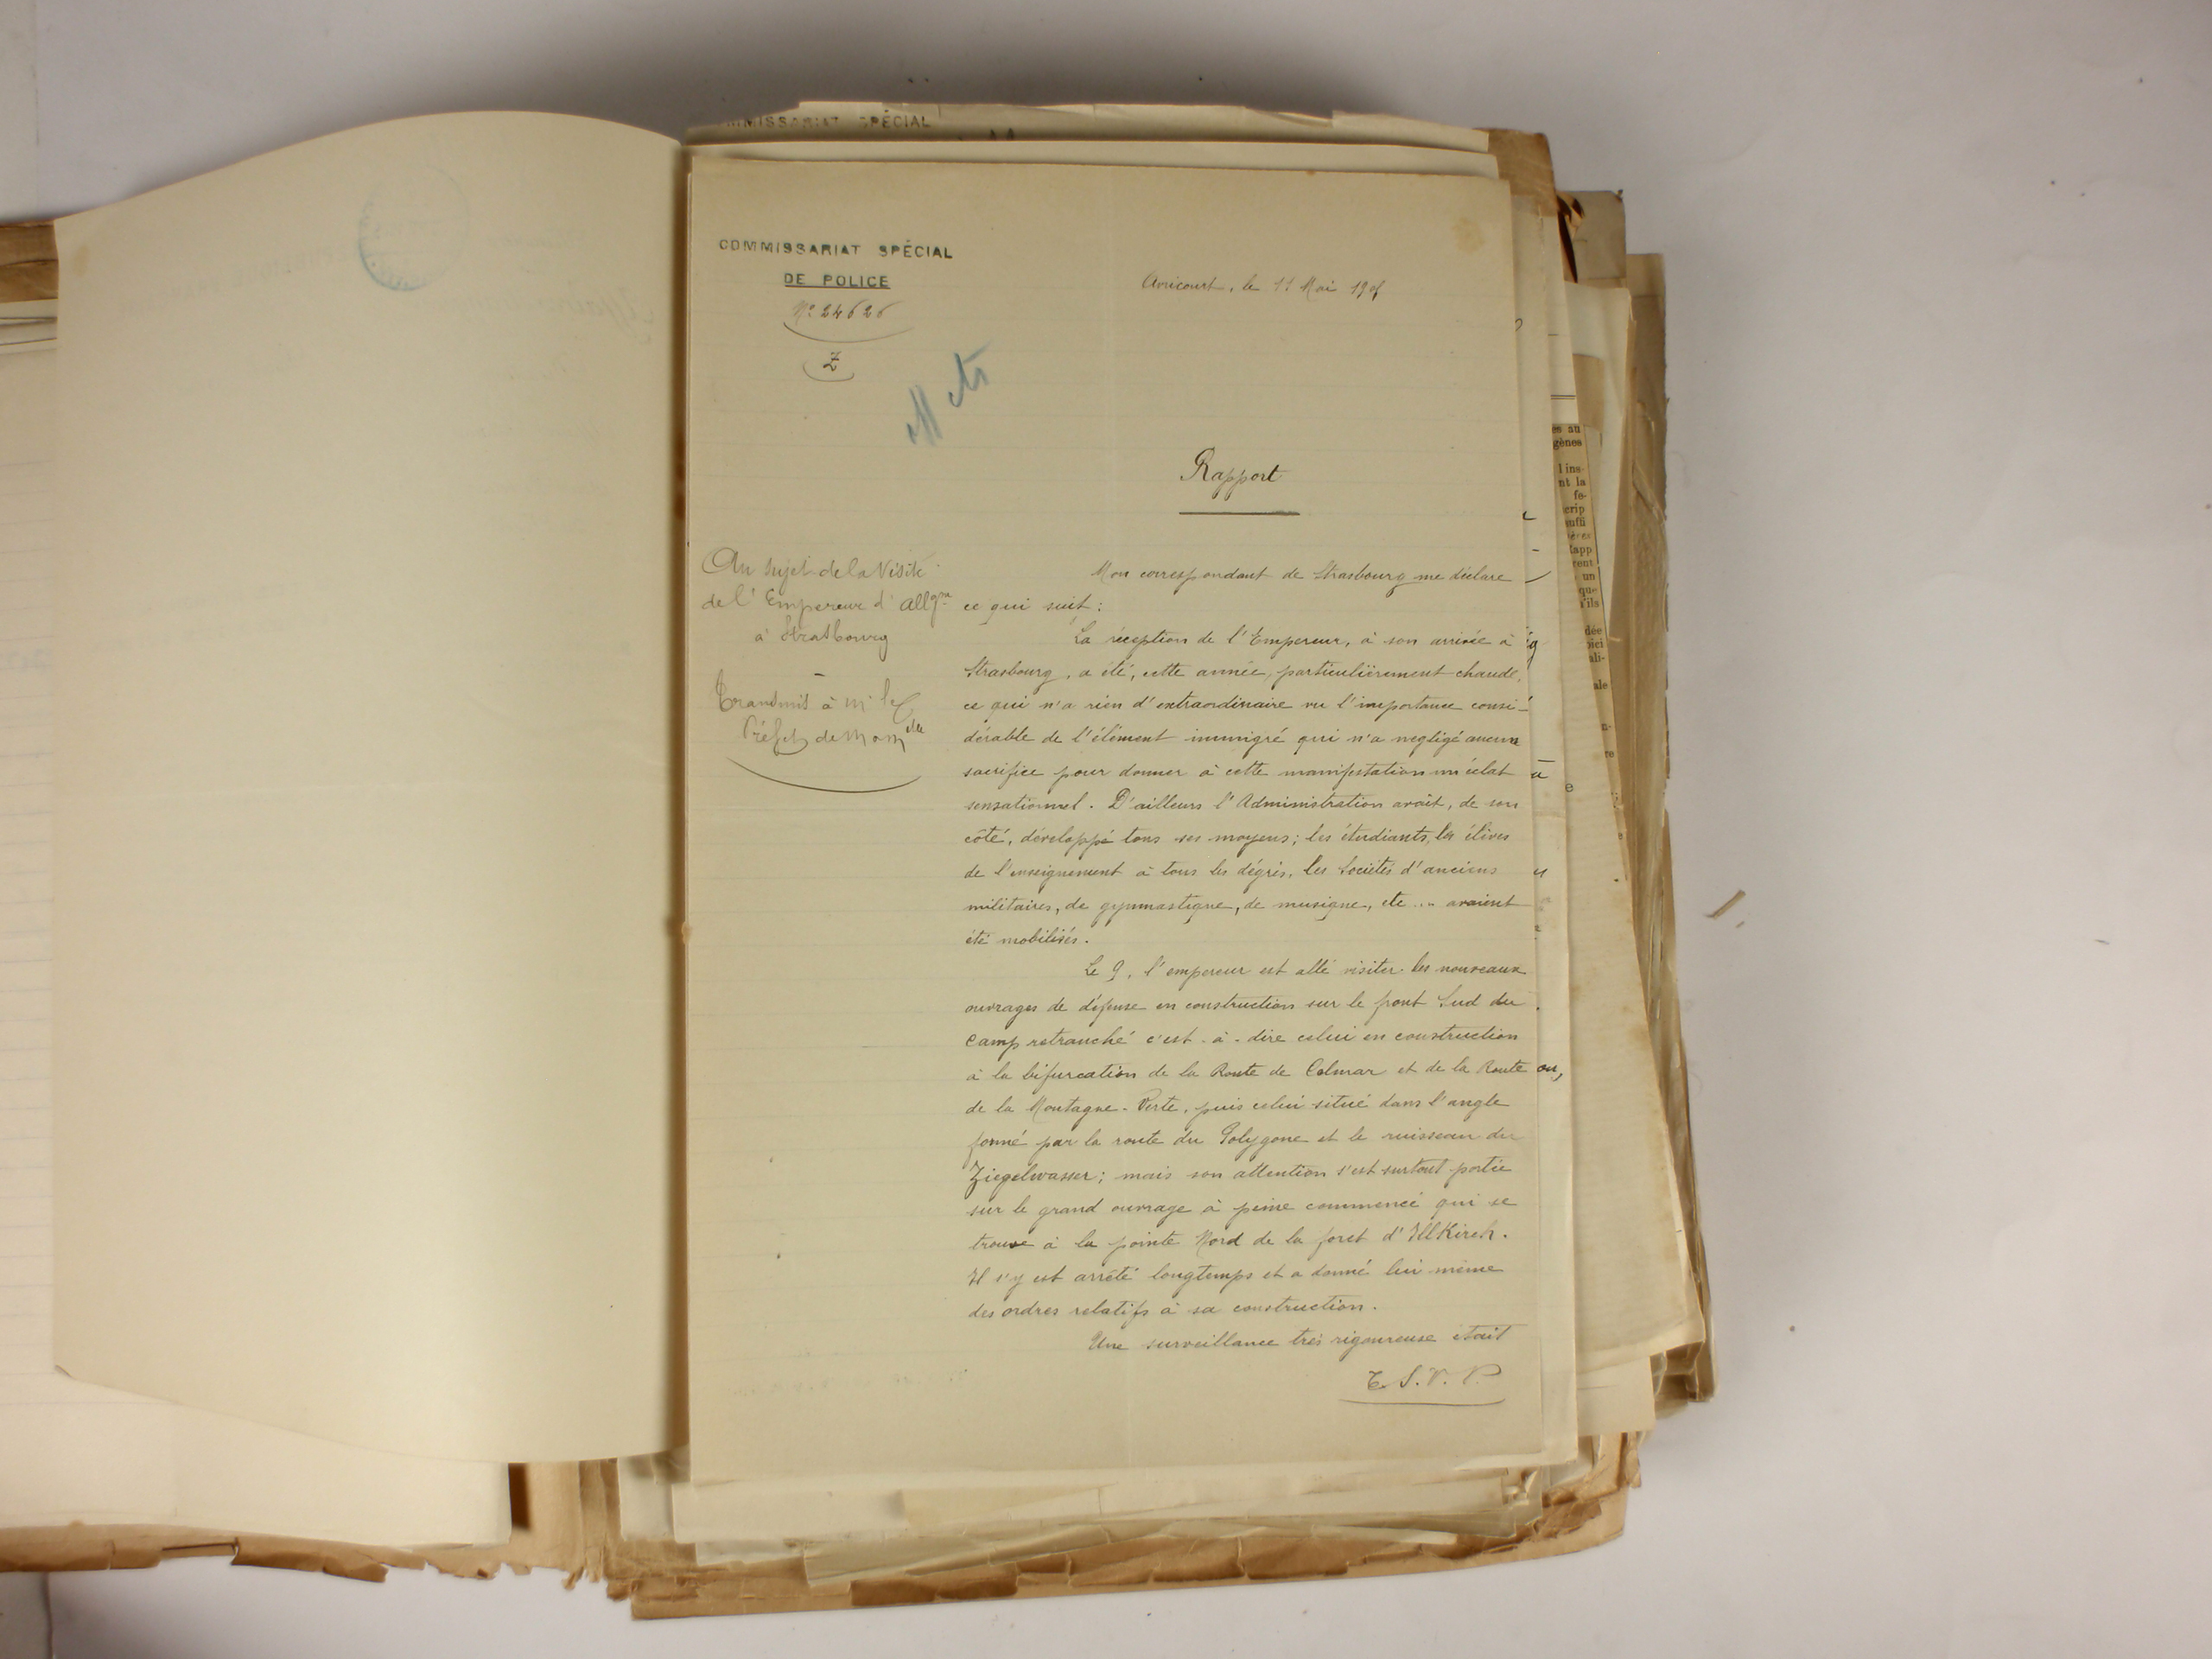 MMISSARIAT SPÉCIAL
COMMISSARIAT SPÉCIAL
DE POLICE
Nº 24626
Z
Avricourt, le 11 Mai 190
Rapport
Au sujet de la Visite
de l'Empereur d'Allgne
à Strasbourg
Transmis à Mr le
Préfet de M et M elle
Mon correspondant de Strasbourg me déclare
ce qui suit :
La réception de l'Empereur, à son arrivée à
Strasbourg, a été, cette année, particulièrement chaude,
ce qui n'a rien d'extraordinaire vu l'importance consi-
dérable de l'élément immigré qui n'a negligé aucun
sacrifice pour donner à cette manifestation un éclat
sensationnel. D'ailleurs l'Administration avait, de son
côté, développé tous ses moyens; les étudiants, les élèves
de l'enseignement à tous les dégrés, les Sociétés d'anciens
militaires, de gymnastique, de musique, etc... avaient
été mobilisés.
Le 9, l'empereur est allé visiter les nouveaux
ouvrages de défense en construction sur le front Sud du
Camp retranché c'est-à-dire celui en construction
à la bifurcation de la Route de Colmar et de la Route
de la Montagne-Verte, puis celui situé dans l'angle
formé par la route du Polygone et le ruisseau du
Ziegelwasser; mais son attention s'est surtout portée
sur le grand ouvrage à peine commencé qui se
trouve à la pointe Nord de la foret d'IllKirch.
Il s'y est arrêté longtemps et a donné lui même
des ordres relatifs à sa construction.
Une surveillance très rigoureuse était
T.S.V.P.